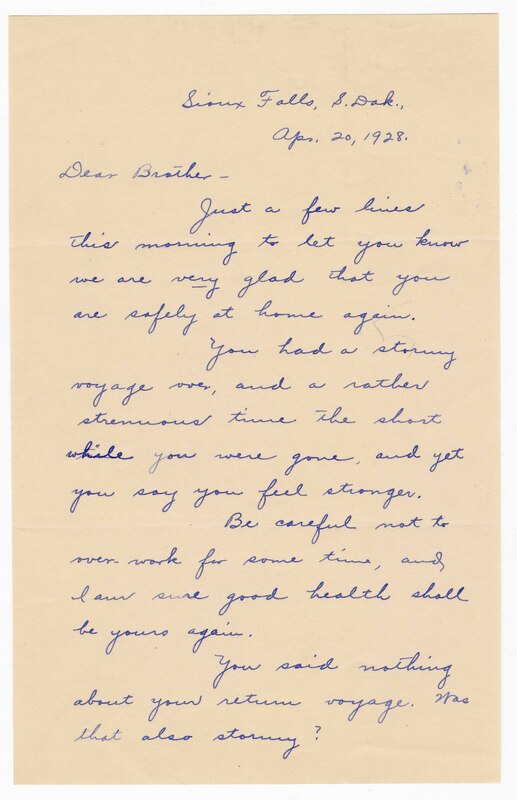 Sioux Falls, S. Dak.,
Apr. 20, 1928.
Dear Brother -
Just a few lines
this morning to let you know
we are very glad that you
are safely at home again.
You had a stormy
voyage over, and a rather
strenuous time the short
while you were gone, and yet
you say you feel stronger.
Be careful not to
over-work for some time, and
I am sure good health shall
be yours again.
You said nothing
about your return voyage. Was
that also stormy?